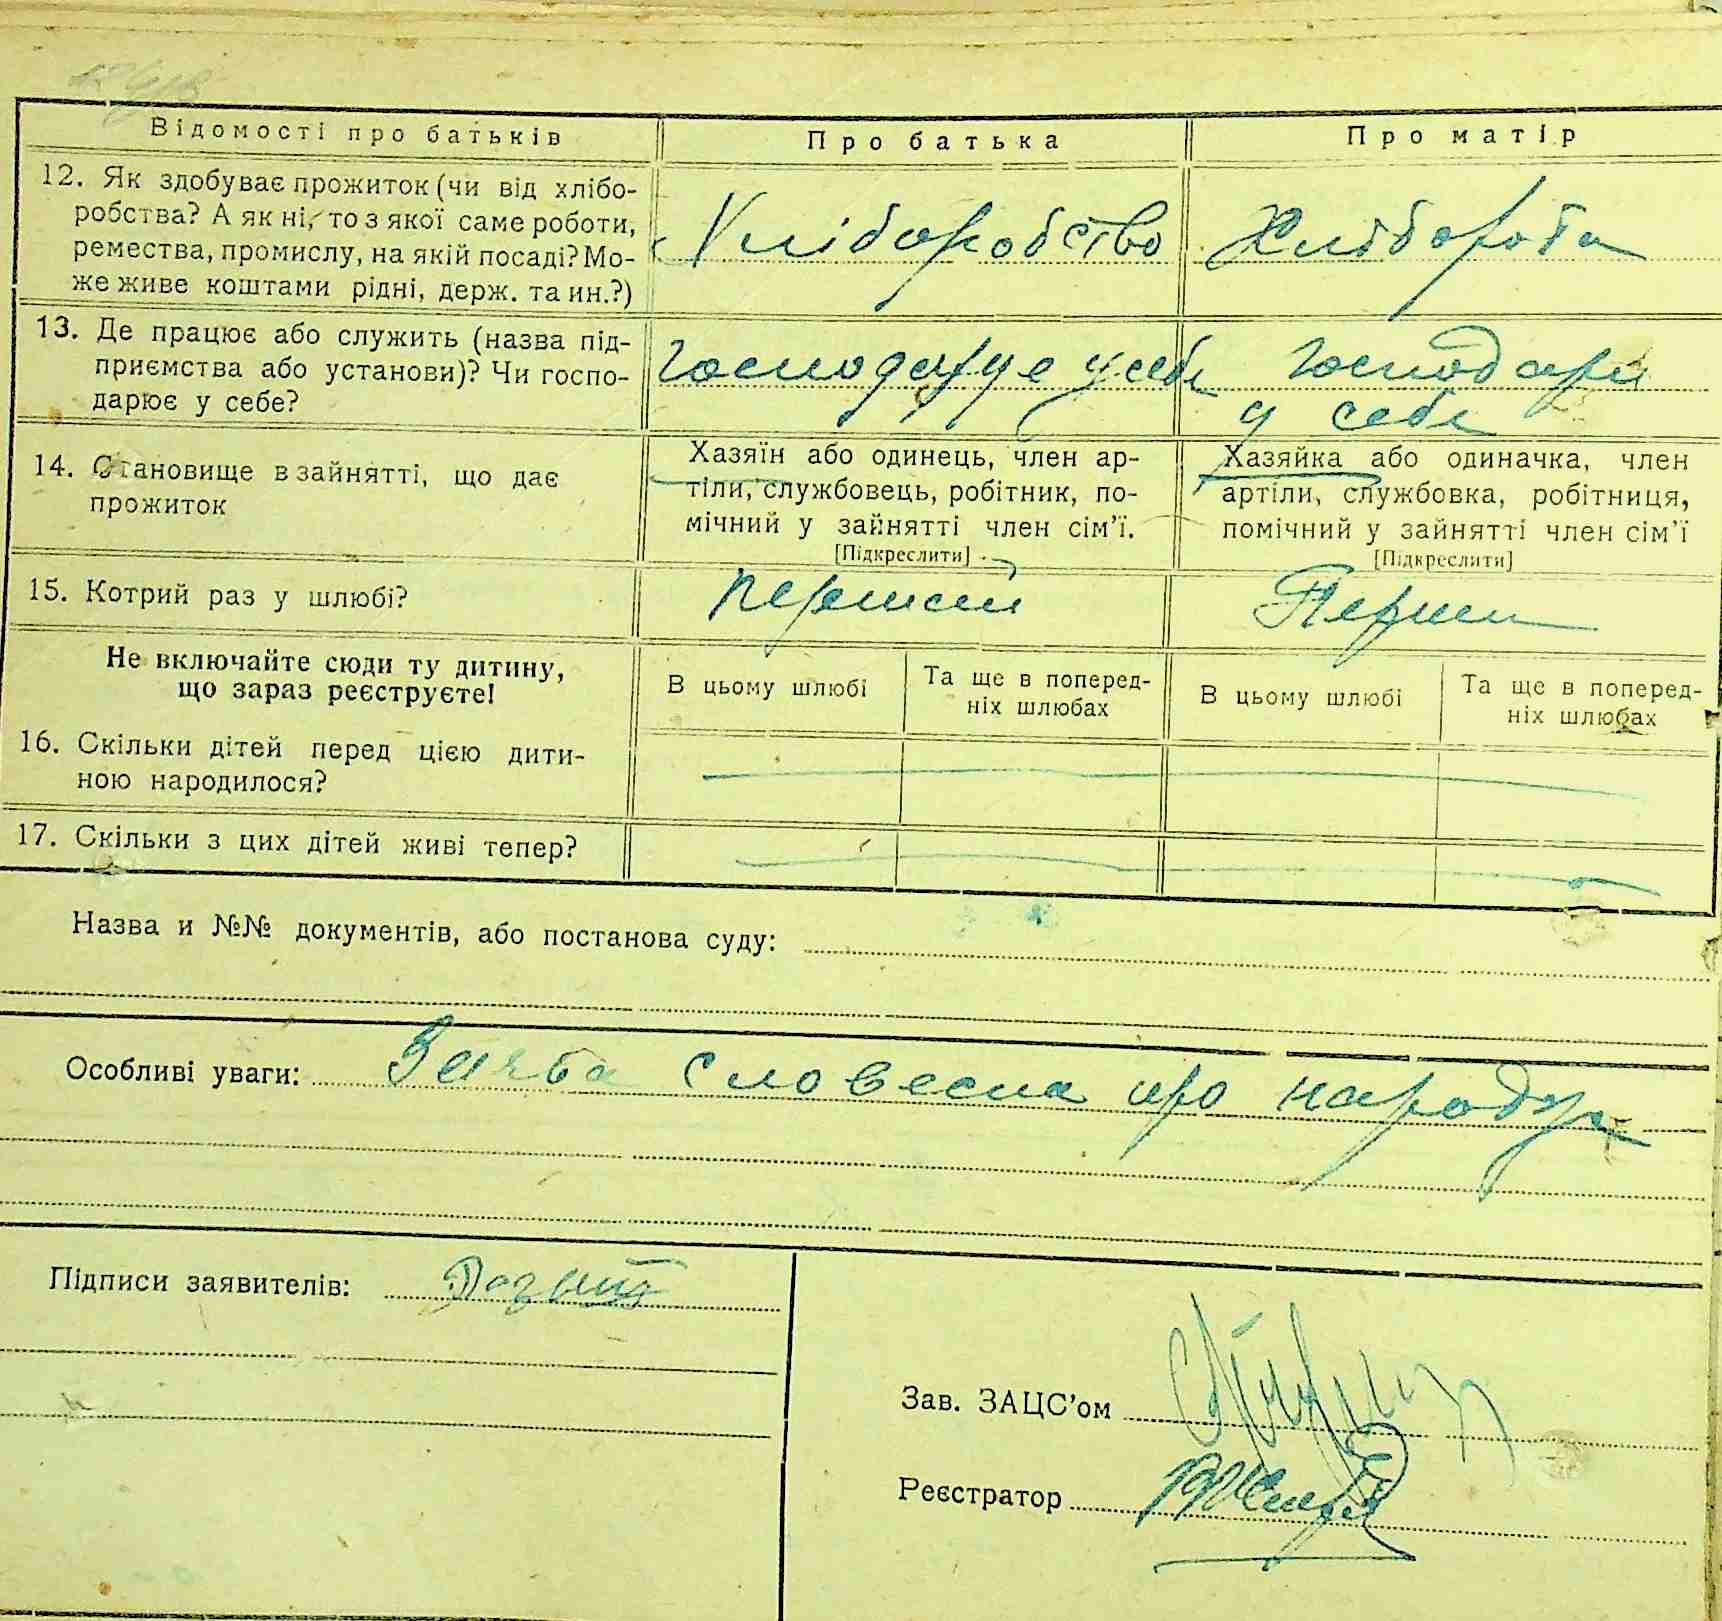 Відомості про батьків
Про батька
Про матір
12. Як здобуває прожиток (чи від хлібо-
робства? А як ні, то з якої саме роботи,
ремества, промислу, на якій посаді? Мо-
же живе коштами рідні, держ. та ин.?)
Хліборобство
Хлібороба
13. Де працює або служить (назва під-
приємства або установи)? Чи госпо-
дарює у себе?
Господарує у себе
Господарує
у себе
14. Становище в зайнятті, що дає
прожиток
Хазяїн або одинець, член ар-
тіли, службовець, робітник, по-
мічний у зайнятті член сім'ї.
[Підкреслити]
Хазяйка або одиначка, член
артіли, службовка, робітниця,
помічний у зайнятті член сім'ї
[Підкреслити]
15. Котрий раз у шлюбі?
Перший
Не включайте сюди ту дитину,
що зараз реєструєте!
В цьому шлюбі
Та ще в поперед-
ніх шлюбах
В цьому шлюбі
Та ще в поперед-
ніх шлюбах
16. Скільки дітей перед цією дити-
ною народилося?
17. Скільки з цих дітей живі тепер?
Назва и №№ документів, або постанова суду:
Особливі уваги: словесна про народж
Підписи заявителів:
Зав. ЗАЦС'ом
Реєстратор